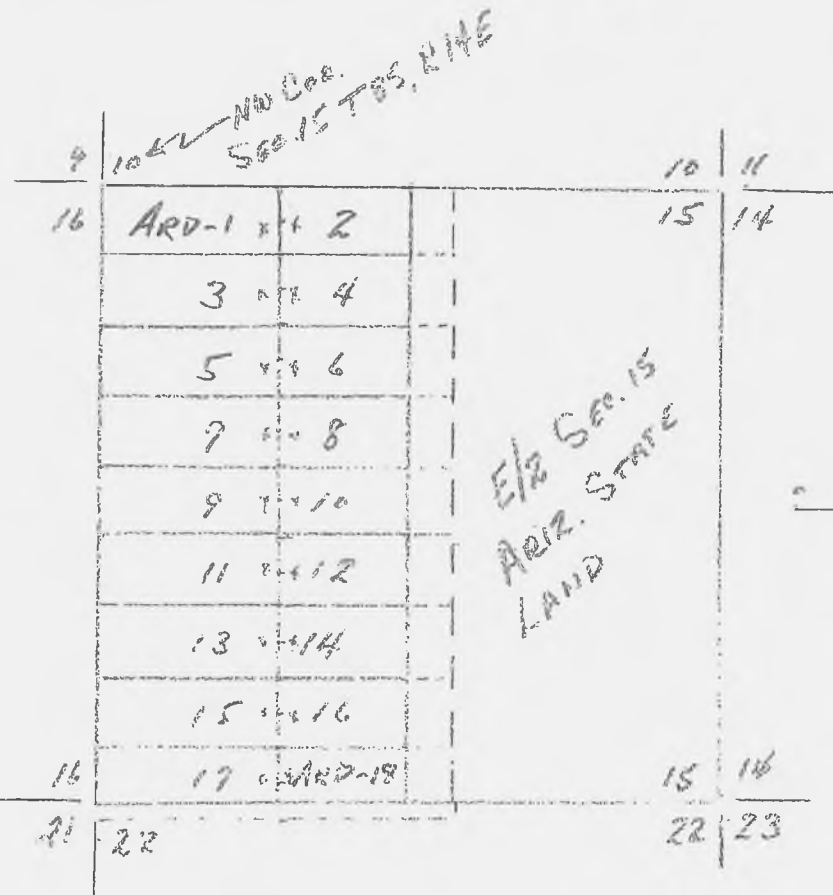 NW COR.
SEC. 15 T8S, R14E
9 10 10 11
16 15 14
ARD-1 2
3 4
5 6
7 8
9 10
11 12
13 14
15 16
17 ARD-18
E/2 SEC. 15
ARIZ. STATE
LAND
16 15 14
21 22 22 23